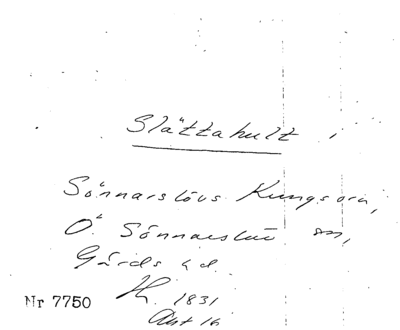 Slättahult i
Sönnarslövs Kungsorn,
Ö Sönnarslöv sn,
Gärds hd.
Nr 7750
1831
Akt 16